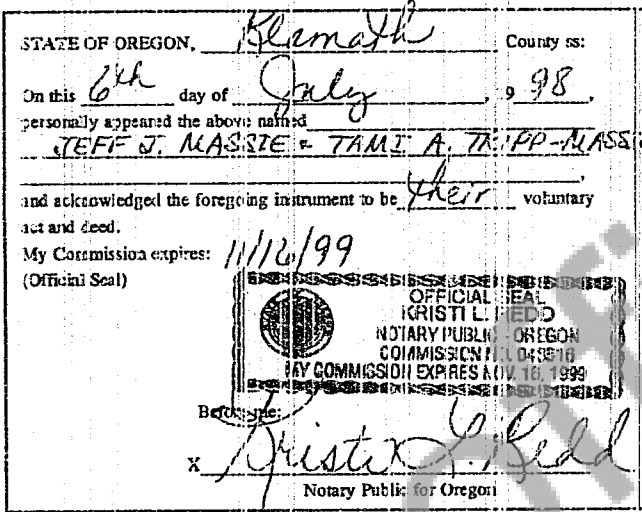 STATE OF OREGON, Klamath County ss:
On this 6th day of July, 9 98,
personally appeared the above named
JEFF J. MASSIE & TAMI A. TRIPP-MASSI
and acknowledged the foregoing instrument to be their voluntary
act and deed.
My Commission expires: 11/16/99
(Official Seal)
OFFICIAL SEAL
KRISTI L. REDD
NOTARY PUBLIC - OREGON
COMMISSION NO.
MY COMMISSION EXPIRES NOV. 16, 1999
Before me:
X Kristi L. Redd
Notary Public for Oregon